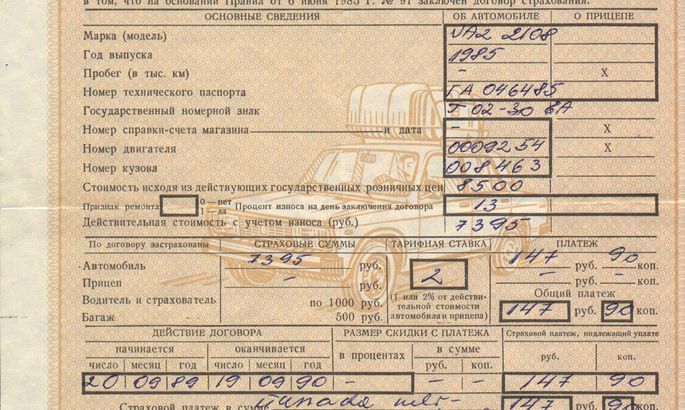 в том, что на основании Правил от 6 июня 1983 г. № 91 заключен договор страхования.
ОСНОВНЫЕ СВЕДЕНИЯ ОБ АВТОМОБИЛЕ О ПРИЦЕПЕ
Марка (модель) ВАЗ 2108
Год выпуска 1985
Пробег (в тыс. км) – X
Номер технического паспорта ГА 046485
Государственный номерной знак Т 02-30 ЕА
Номер справки-счета магазина и дата – X
Номер двигателя 0009254 X
Номер кузова 008463
Стоимость исходя из действующих государственных розничных цен 8500
Признак ремонта 0—нет 1—да Процент износа на день заключения договора 13
Действительная стоимость с учетом износа (руб.) 7395
По договору застрахованы СТРАХОВЫЕ СУММЫ ТАРИФНАЯ СТАВКА ПЛАТЕЖ
Автомобиль 7395 руб. 2 147 руб. 90 коп.
Прицеп – руб. – руб. – коп.
Водитель и страхователь по 1000 руб. (1 или 2% от действительной стоимости автомобиля и прицепа) Общий платеж
Багаж 500 руб. 147 руб. 90 коп.
ДЕЙСТВИЕ ДОГОВОРА РАЗМЕР СКИДКИ С ПЛАТЕЖА Страховой платеж, подлежащий уплате
начинается оканчивается в процентах в сумме руб. коп.
число месяц год число месяц год руб. коп.
20 09 89 19 09 90 – – – 147 90
Страховой платеж в сумме 147 руб. 90 коп.